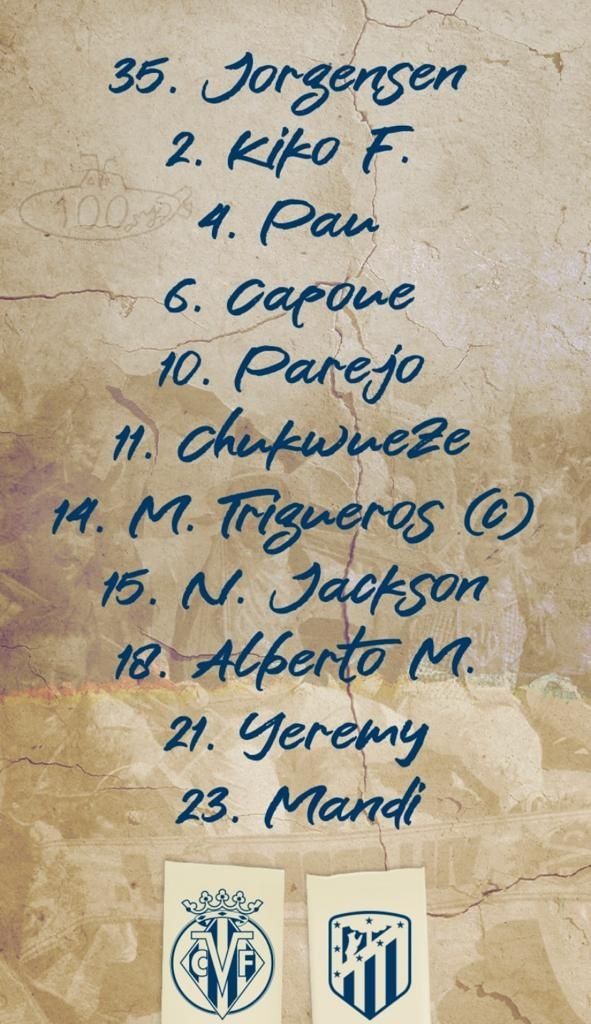 35. Jorgensen
2. Kiko F.
100
4. Pau
6. Capoue
10. Parejo
11. Chukwueze
14. M. Trigueros (C)
15. N. Jackson
18. Alberto M.
21. Yeremy
23. Mandi
CVF